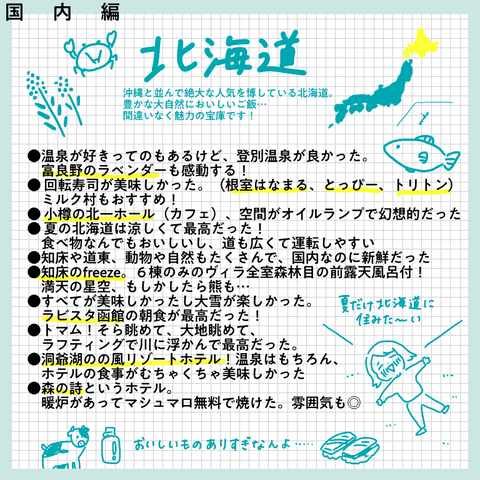 国内編
北海道
沖縄と並んで絶大な人気を博している北海道。
豊かな大自然においしいご飯…
間違いなく魅力の宝庫です！
●温泉が好きってのもあるけど、登別温泉が良かった。
富良野のラベンダーも感動する！
●回転寿司が美味しかった。（根室はなまる、とっぴー、トリトン）
ミルク村もおすすめ！
●小樽の北一ホール（カフェ）、空間がオイルランプで幻想的だった
●夏の北海道は涼しくて最高だった！
食べ物なんでもおいしいし、道も広くて運転しやすい
●知床や道東、動物や自然もたくさんで、国内なのに新鮮だった
●知床のfreeze。６棟のみのヴィラ全室森林目の前露天風呂付！
満天の星空、もしかしたら熊も…
●すべてが美味しかったし大雪が楽しかった。
ラビスタ函館の朝食が最高だった！
●トマム！そら眺めて、大地眺めて、
ラフティングで川に浮かんで最高だった。
●洞爺湖のの風リゾートホテル！温泉はもちろん、
ホテルの食事がむちゃくちゃ美味しかった
●森の詩というホテル。
暖炉があってマシュマロ無料で焼けた。雰囲気も◎
夏だけ北海道に
住みた〜い
おいしいものありすぎなんよ……